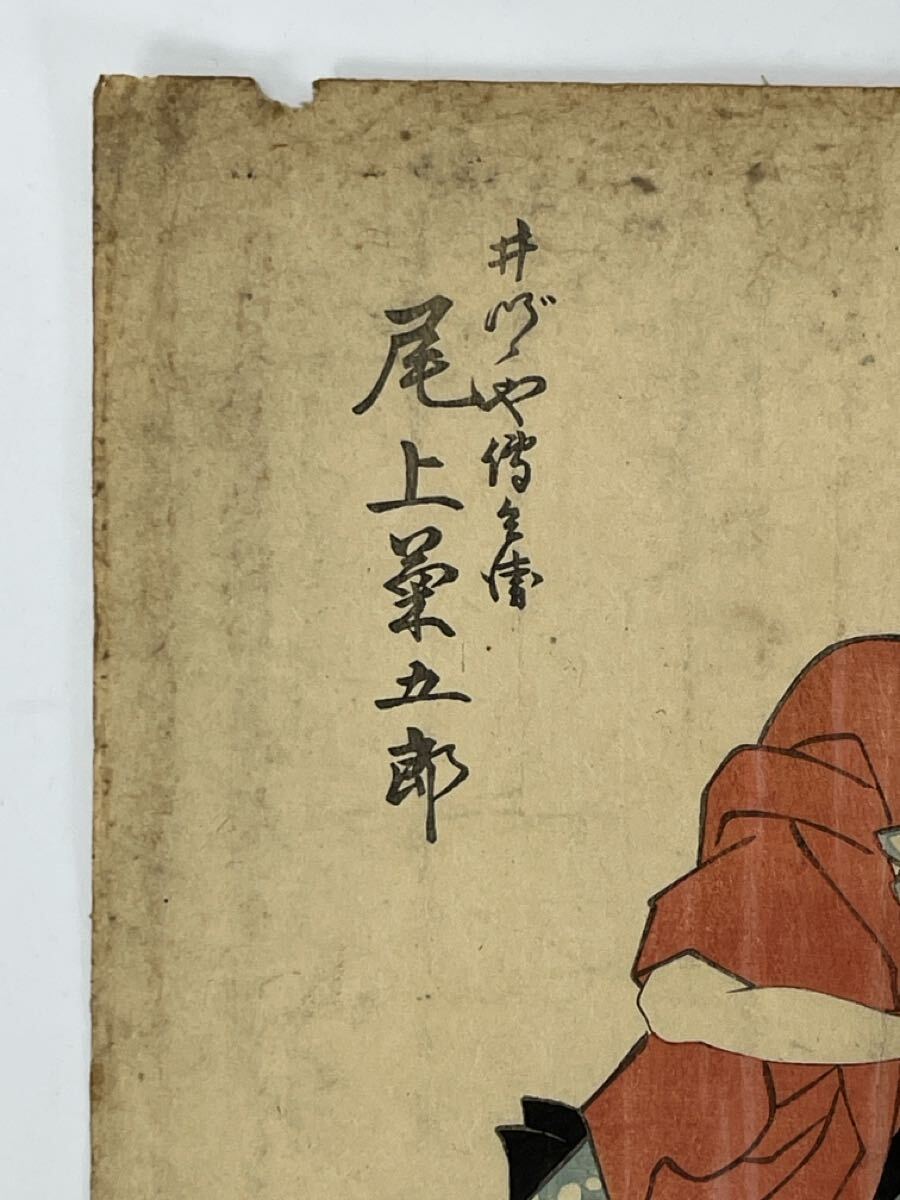 井づゝや傳兵衛
尾上菊五郎